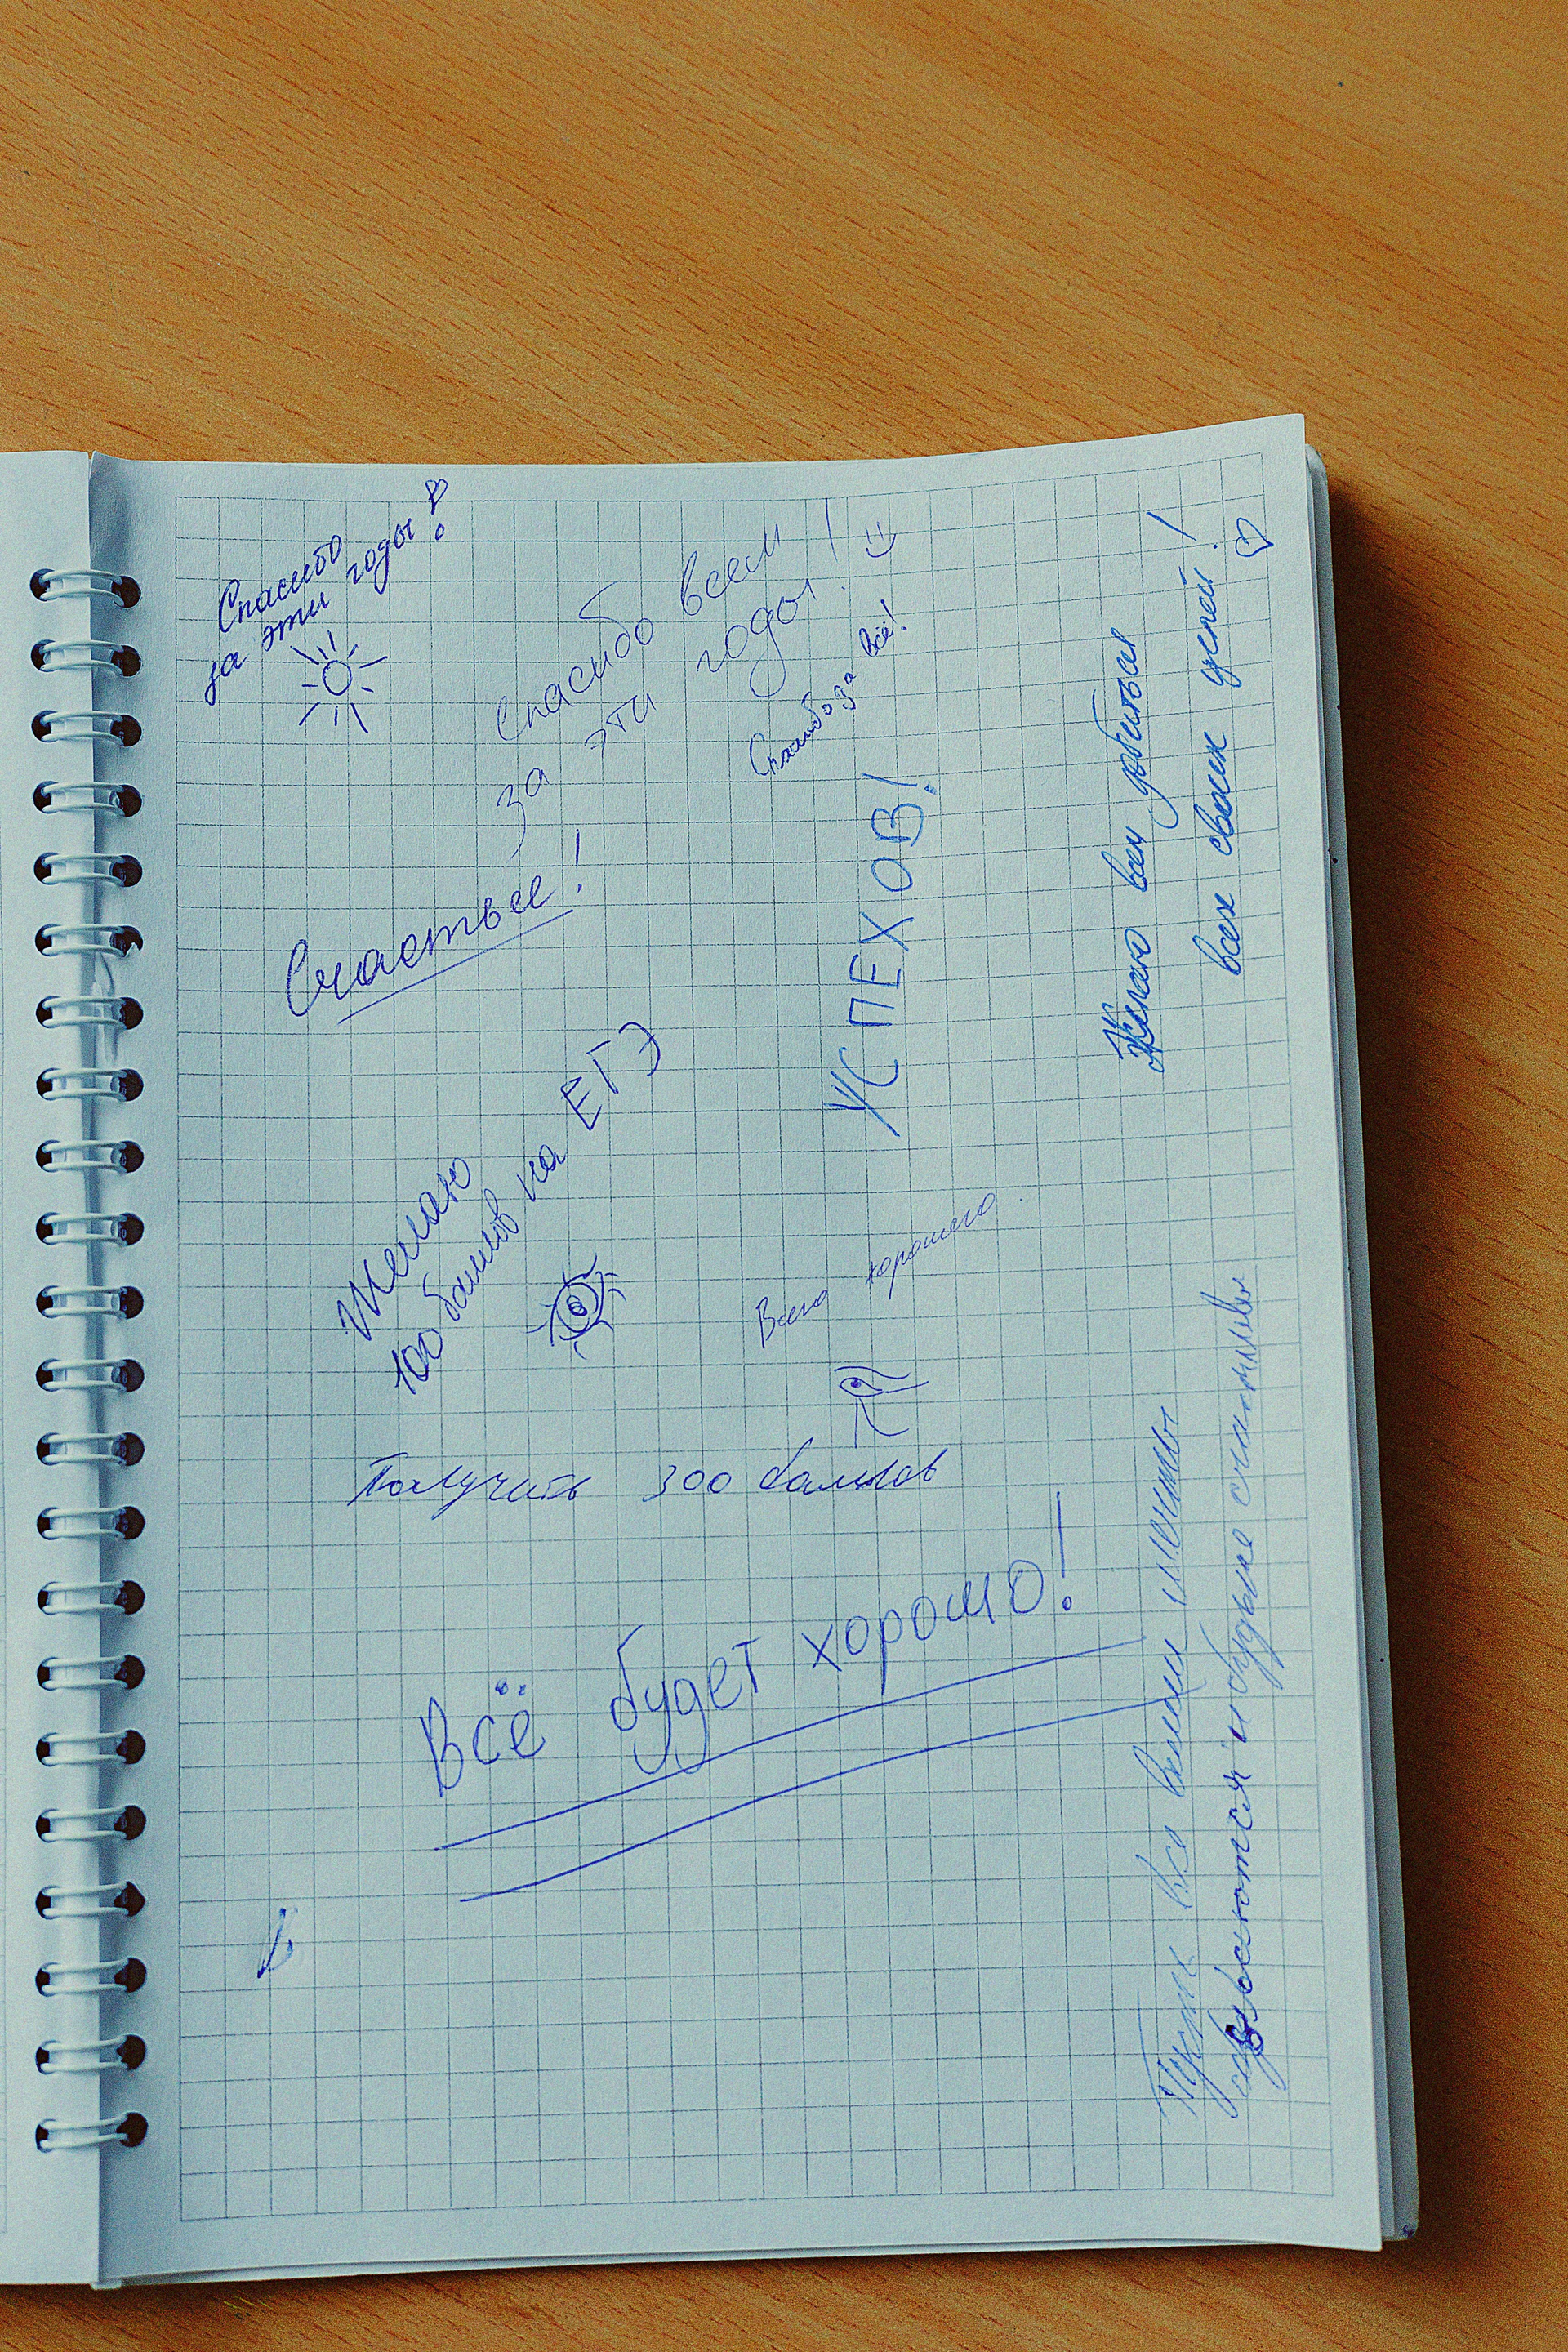 Спасибо
за эти годы!
Спасибо всем
за эти годы!
Спасибо за всё!
Счастье!
УСПЕХОВ!
Желаю всем добиться
всех своих целей!
Желаю
100 баллов на ЕГЭ
Всего хорошего
Получить 300 баллов
Всё будет хорошо!
Пусть все ваши мечты
сбываются и будьте счастливы